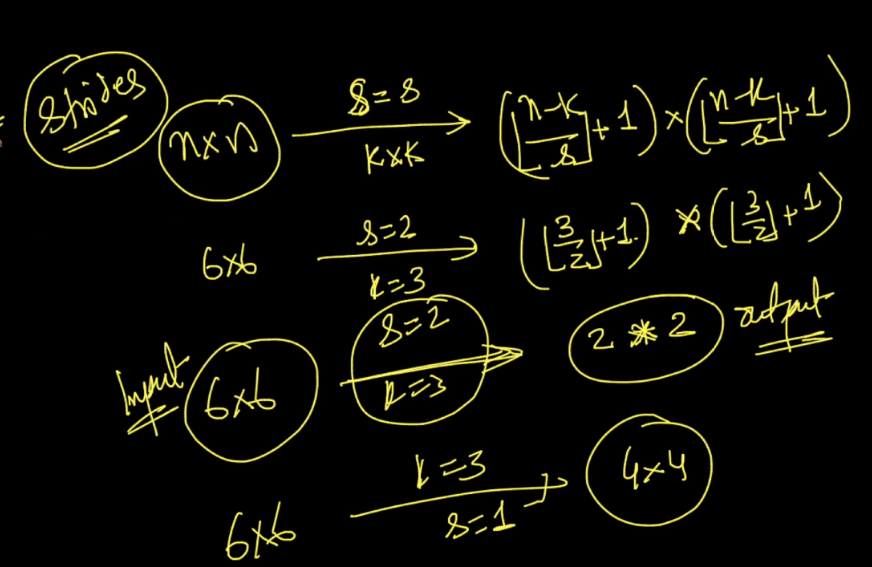 Strides
n×n S=s K×K (⌊n-k/s⌋+1)×(⌊n-k/s⌋+1)
6×6 s=2 k=3 (⌊3/2⌋+1)×(⌊3/2⌋+1)
Input 6×6 s=2 k=3 2*2 output
6×6 k=3 s=1 4×4